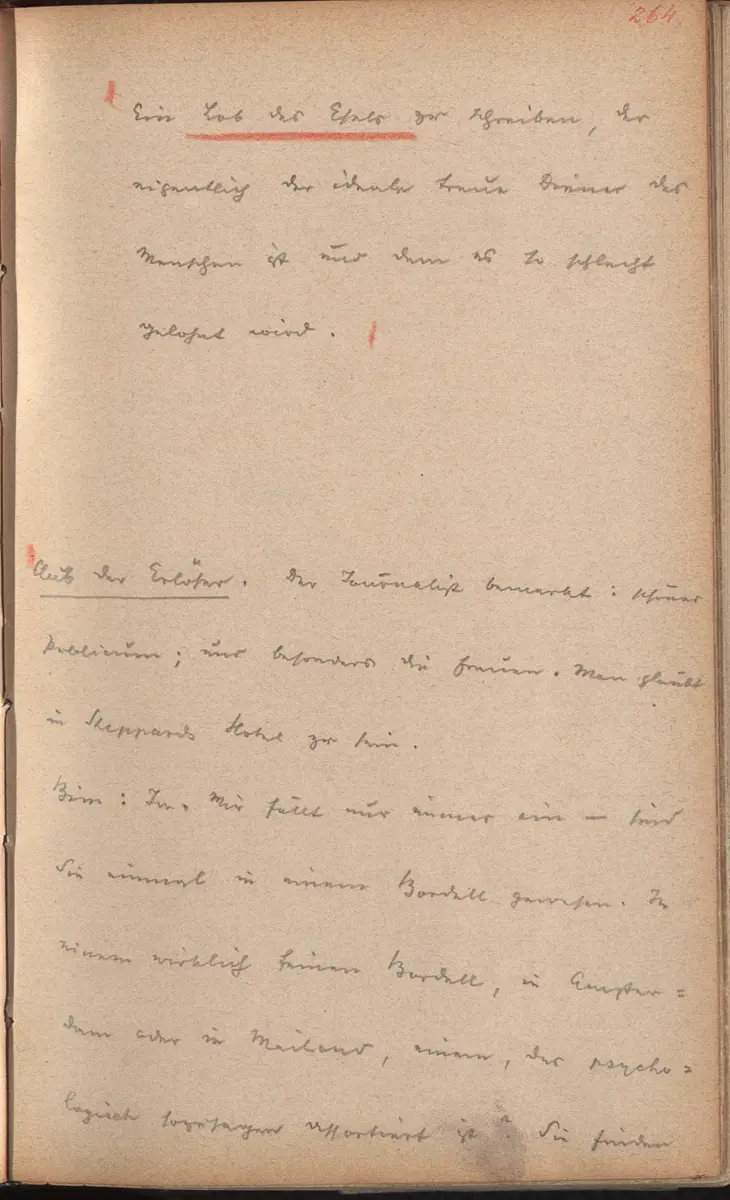 264
Ein Lob des Esels zu schreiben, der
eigentlich der ideale treue Diener des
Menschen ist und dem es so schlecht
gelohnt wird.
Club der Erlöser. Der Journalist bemerkt: schönes
Publicum; und besonders die Frauen. Man glaubt
in Sheppards Hotel zu sein.
Bim: Ja. Mir fällt nur immer ein — sind
Sie einmal in einem Bordell gewesen. In
einem wirklich feinen Bordell, in Amster=
dam oder in Mailand, einem, das psycho=
logisch sozusagen assortiert ist? Sie finden